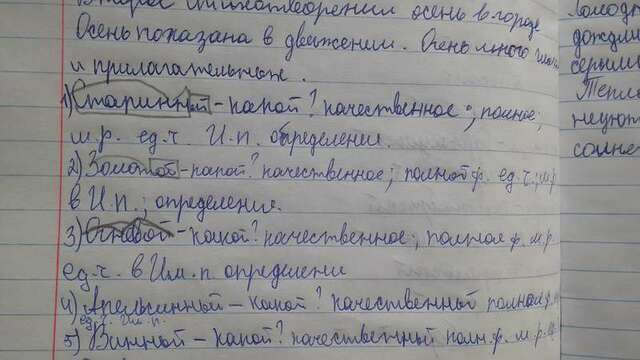 Второе стихотворении осень в городе
Осень показана в движении. Очень много
и прилагательных.
1) Старинный - какой? качественное; полное,
м.р. ед.ч. И.п. определение.
2) Золотой - какой? качественное; полной ф. ед.ч.; м.р
в И.п.; определение.
3) Осиевой - какой? качественное; полная ф. м.р.
ед.ч. в Им.п. определение
4) Апельсинный - какой? качественный полном ф.
ед.ч. Им.п.
5) Винный - какой? качественный полн.ф. м.р.
дождли
серыми
Тепл
неуют
солне